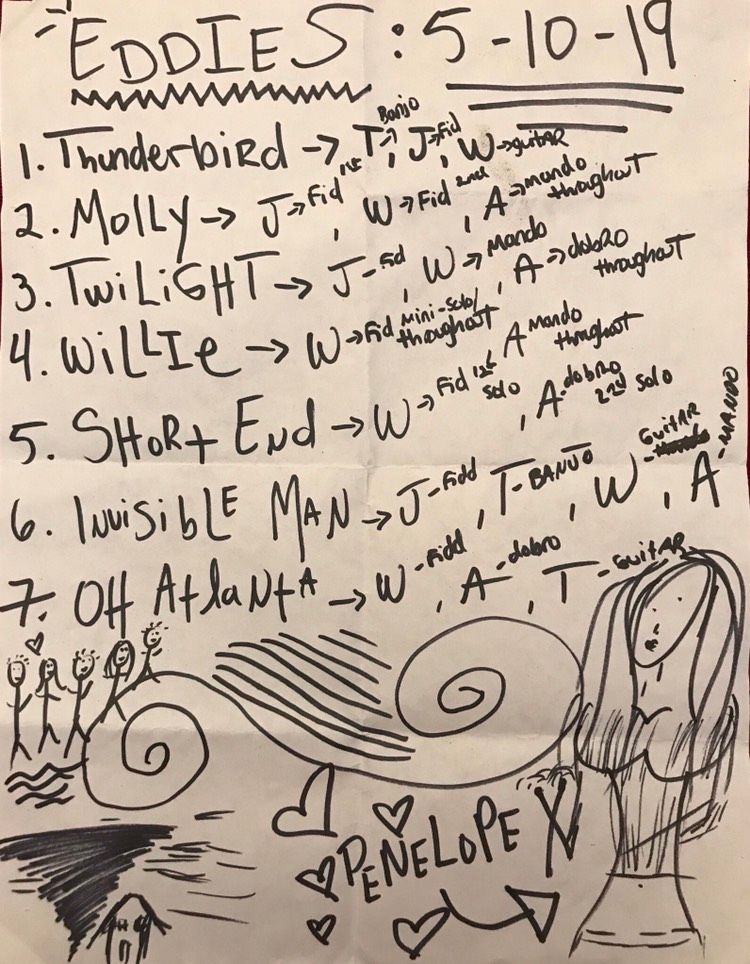 EDDIES : 5-10-19
1. Thunderbird → T→ Banjo, J→ Fid, W→ guitar
2. Molly → J→ Fid 1st, W→ Fid 2nd, A→ mando throughout
3. Twilight → J- Fid, W→ Mando, A→ dobro throughout
4. Willie → W→ Fid mini-solo/throughout, A mando throughout
5. Short End → W→ Fid 1st solo, A- dobro 2nd solo
6. Invisible Man → J- Fidd, T- Banjo, W- Guitar, A- Mando
7. Oh Atlanta → W- Fidd, A- dobro, T- Guitar
PENELOPE